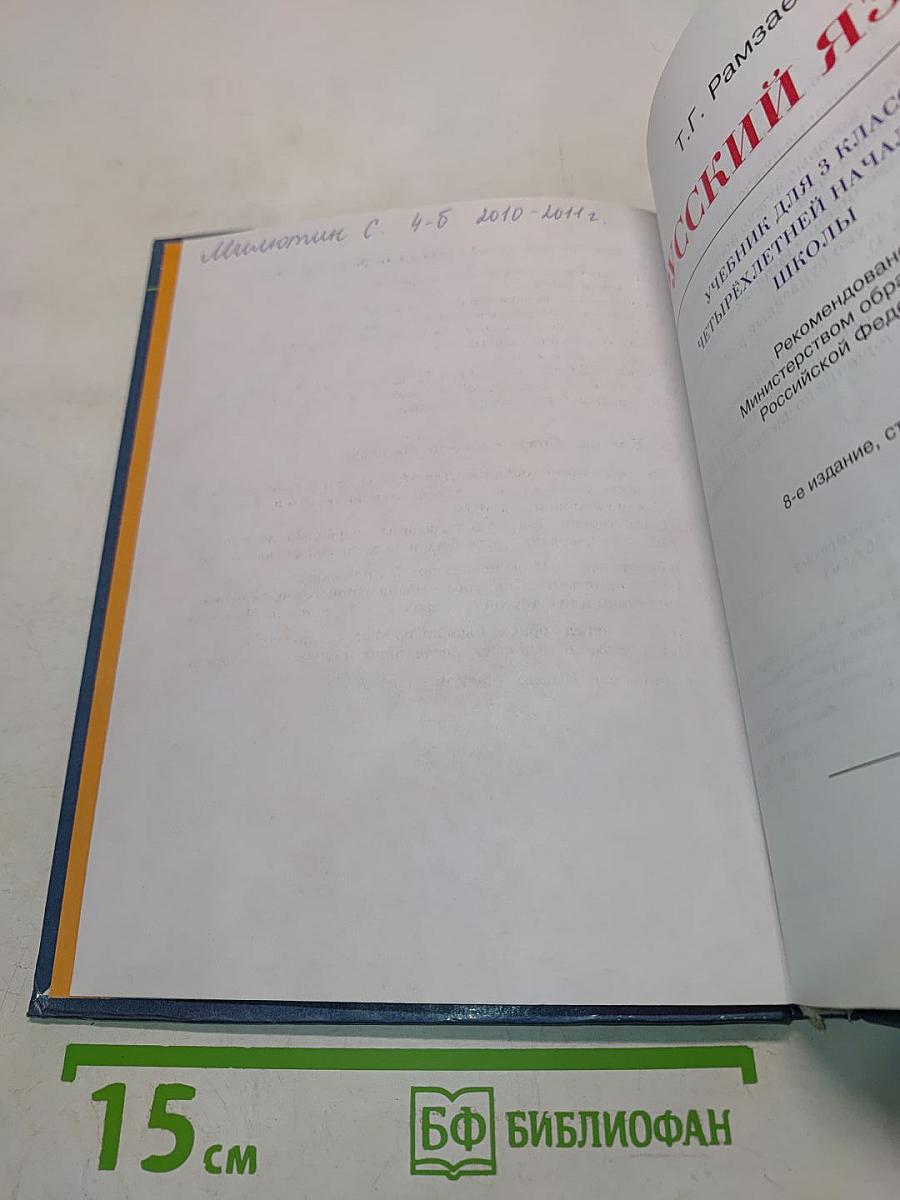 Милютин С. 4-б 2010-2011 г.
Т.Г. Рамзае
РУССКИЙ ЯЗ
УЧЕБНИК ДЛЯ 3 КЛАСС
ЧЕТЫРЁХЛЕТНЕЙ НАЧАЛ
ШКОЛЫ
Рекомендовано
Министерством обра
Российской Феде
8-е издание, ст
15 см
БФ БИБЛИОФАН